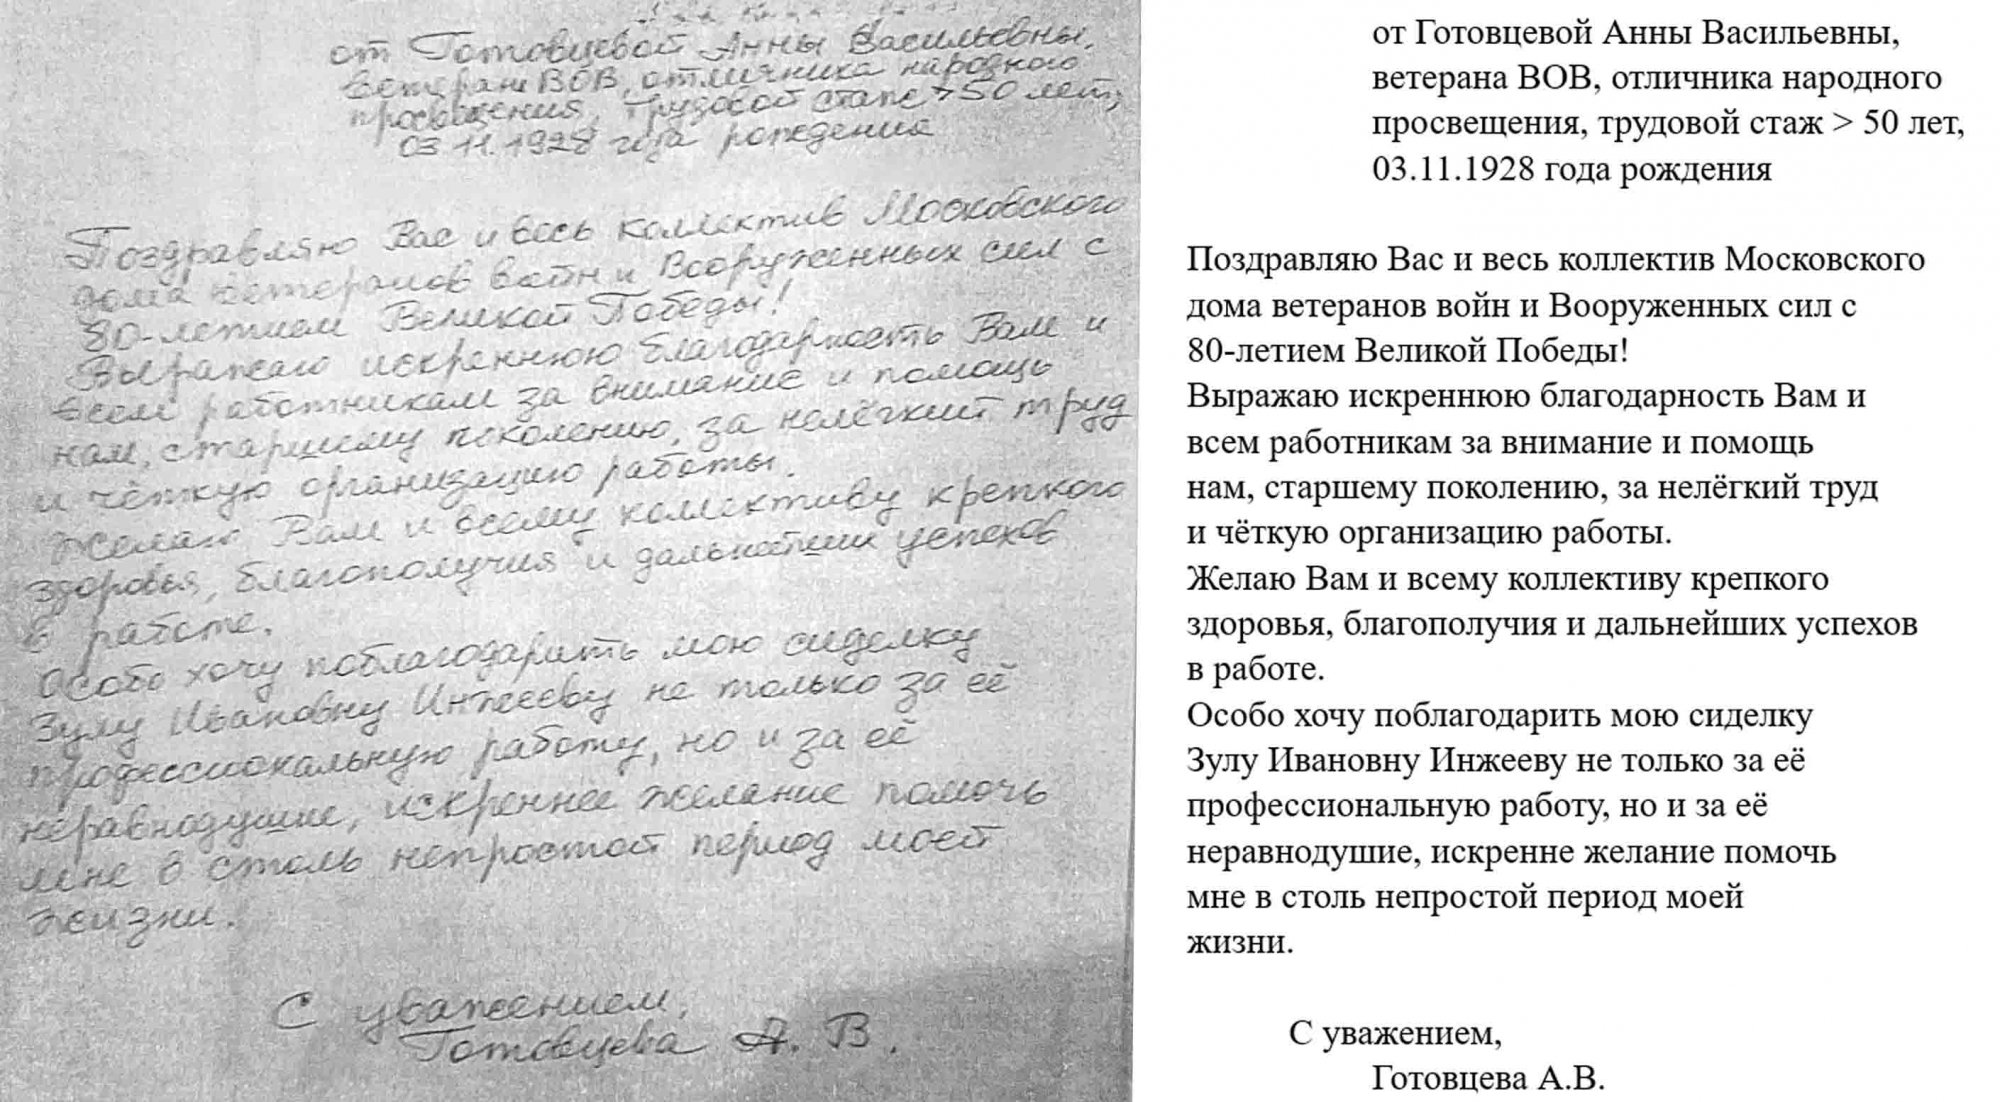 от Готовцевой Анны Васильевны,
ветерана ВОВ, отличника народного
просвещения, трудовой стаж > 50 лет,
03.11.1928 года рождения
Поздравляю Вас и весь коллектив Московского
дома ветеранов войн и Вооруженных сил с
80-летием Великой Победы!
Выражаю искреннюю благодарность Вам и
всем работникам за внимание и помощь
нам, старшему поколению, за нелёгкий труд
и чёткую организацию работы.
Желаю Вам и всему коллективу крепкого
здоровья, благополучия и дальнейших успехов
в работе.
Особо хочу поблагодарить мою сиделку
Зулу Ивановну Инжееву не только за её
профессиональную работу, но и за её
неравнодушие, искреннее желание помочь
мне в столь непростой период моей
жизни.
С уважением,
Готовцева А. В.
от Готовцевой Анны Васильевны,
ветерана ВОВ, отличника народного
просвещения, трудовой стаж > 50 лет,
03.11.1928 года рождения
Поздравляю Вас и весь коллектив Московского
дома ветеранов войн и Вооруженных сил с
80-летием Великой Победы!
Выражаю искреннюю благодарность Вам и
всем работникам за внимание и помощь
нам, старшему поколению, за нелёгкий труд
и чёткую организацию работы.
Желаю Вам и всему коллективу крепкого
здоровья, благополучия и дальнейших успехов
в работе.
Особо хочу поблагодарить мою сиделку
Зулу Ивановну Инжееву не только за её
профессиональную работу, но и за её
неравнодушие, искренне желание помочь
мне в столь непростой период моей
жизни.
С уважением,
Готовцева А.В.